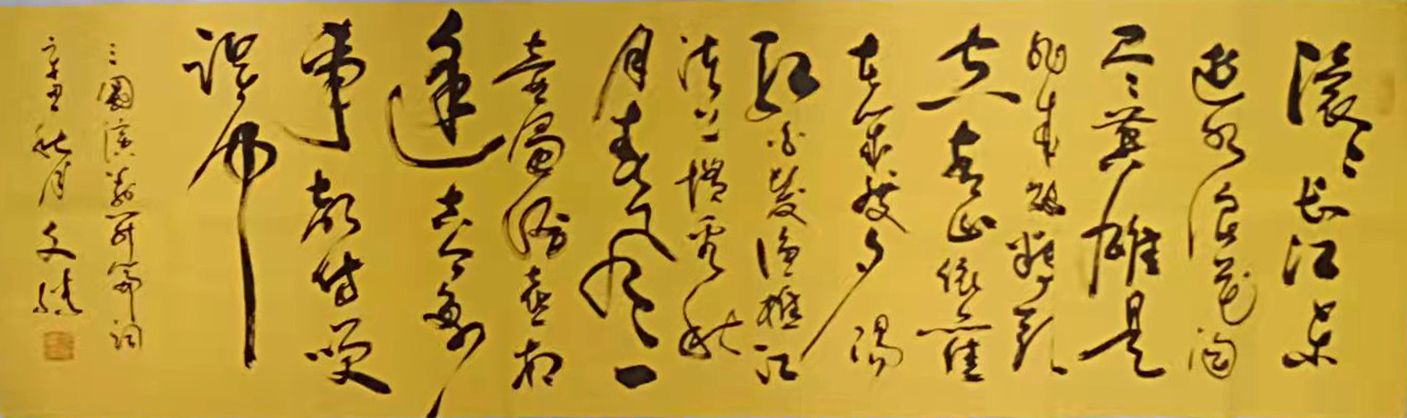 滚滚长江东
逝水浪花淘
尽英雄是
非成败轉头
空青山依舊
在几度夕陽
红白发渔樵江
渚上惯看秋
月春风一
壶濁酒喜相
逢古今多少
事都付笑
谈中
三國演義開篇词
辛丑秋月文